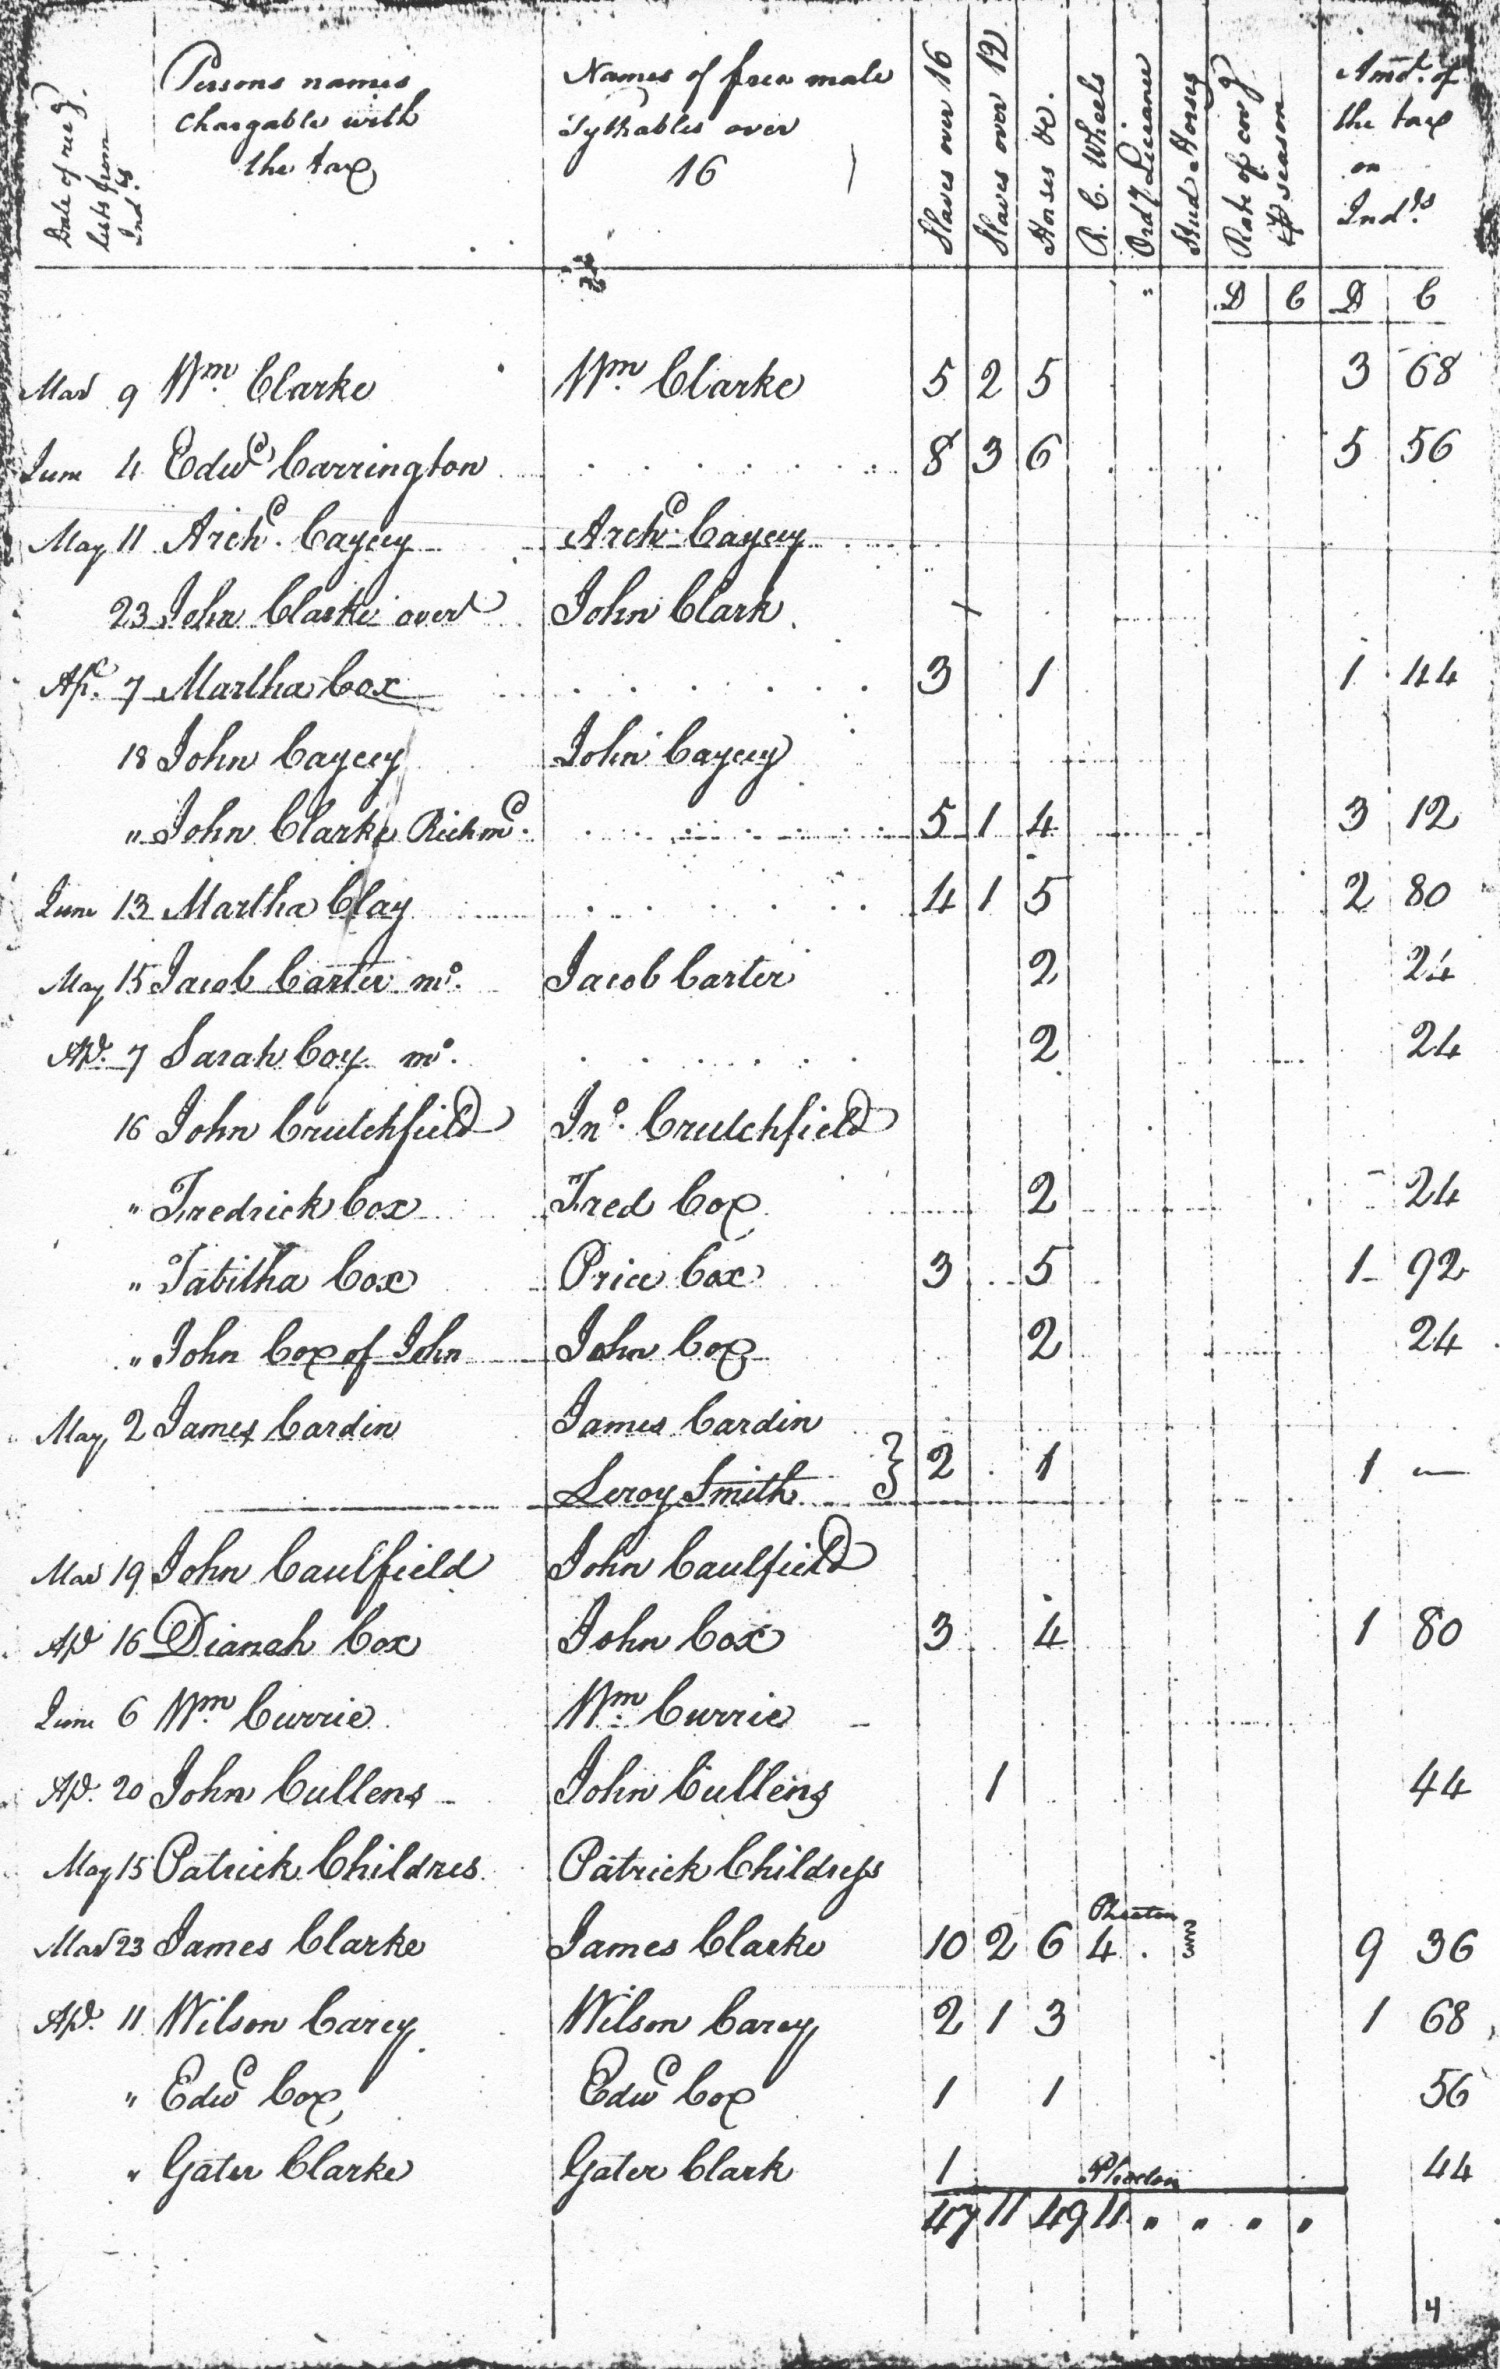 Date of recg. lists from Inds
Persons names chargable with the tax
Names of free male Tythables over 16
Slaves over 16
Slaves over 12
Horses &c.
R. C. Wheels
Ordy Licience
Stud Horses
Rate of covg ⅌ season
Amot. of the tax on Indls
D C D C
Mar 9 Wm. Clarke Wm. Clarke 5 2 5 3 68
June 4 Edwd Carrington 8 3 6 5 56
May 11 Archd. Caycey Archd. Caycey
23 John Clarke over John Clark
Apl. 7 Martha Cox 3 1 1 44
18 John Caycey John Caycey
" John Clarke Richmd. 5 1 4 3 12
June 13 Martha Clay 4 1 5 2 80
May 15 Jacob Carter mo. Jacob Carter 2 24
Ap. 7 Sarah Coy mo. 2 24
16 John Crutchfield Jno. Crutchfield
" Fredrick Cox Fred Cox 2 24
" Tabitha Cox Price Cox 3 5 1 92
" John Cox of John John Cox 2 24
May 2 James Cardin James Cardin
Leroy Smith } 2 1 1 —
Mar 19 John Caulfield John Caulfield
Ap 16 Dianah Cox John Cox 3 4 1 80
June 6 Wm. Currie Wm. Currie
Ap. 20 John Cullens John Cullens 1 44
May 15 Patrick Childres Patrick Childress
Phaeton
Mar 23 James Clarke James Clarke 10 2 6 4 9 36
Ap. 11 Wilson Carey Wilson Carey 2 1 3 1 68
" Edwd Cox Edwd Cox 1 1 56
" Gater Clarke Gater Clark 1 44
Phaeton
47 11 49 11 " " " "
4